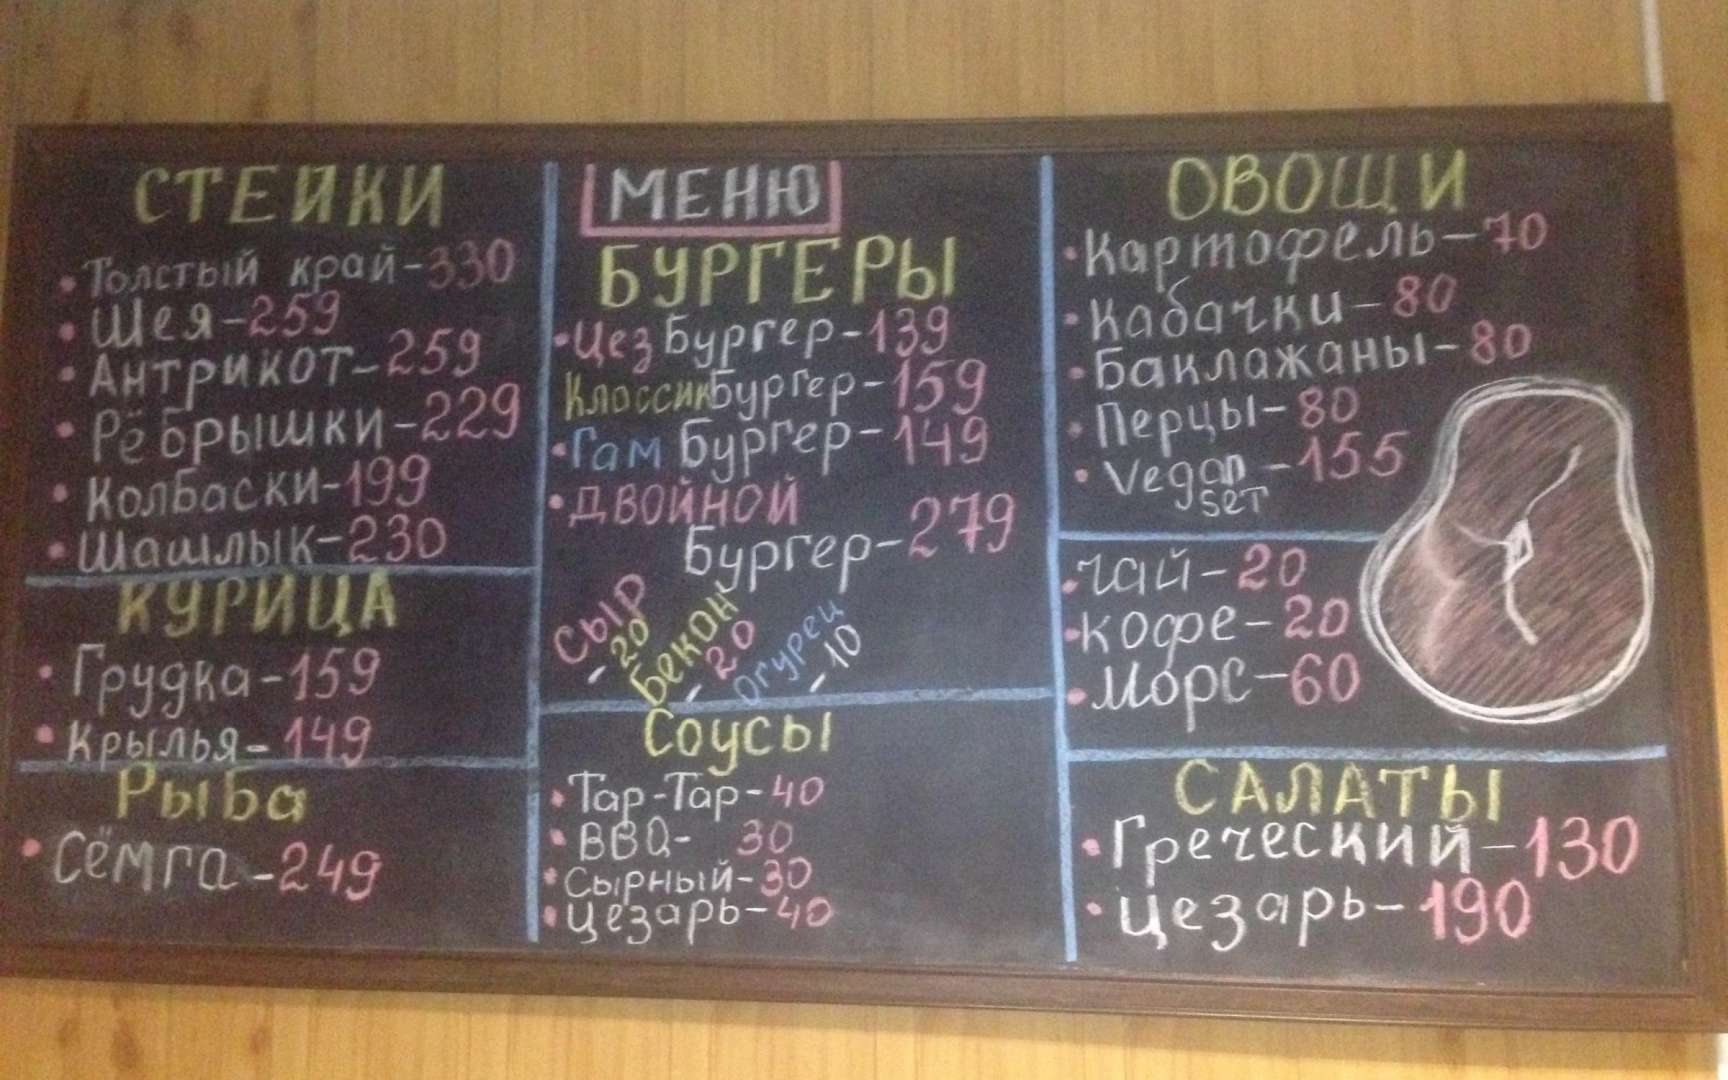 СТЕЙКИ
Толстый край-330
Шея-259
Антрикот-259
Рёбрышки-229
Колбаски-199
Шашлык-230
КУРИЦА
Грудка-159
Крылья-149
Рыба
Сёмга-249
МЕНЮ
БУРГЕРЫ
Цез Бургер-139
КлассикБургер-159
Гам Бургер-149
ДВОЙНОЙ
Бургер-279
Сыр - 20
Бекон - 20
Огурец - 10
Соусы
Тар-Тар-40
BBQ- 30
Сырный-30
Цезарь-40
ОВОЩИ
Картофель-70
Кабачки-80
Баклажаны-80
Перцы-80
Vegan -155
SET
Чай-20
Кофе-20
Морс-60
САЛАТЫ
Греческий-130
Цезарь-190